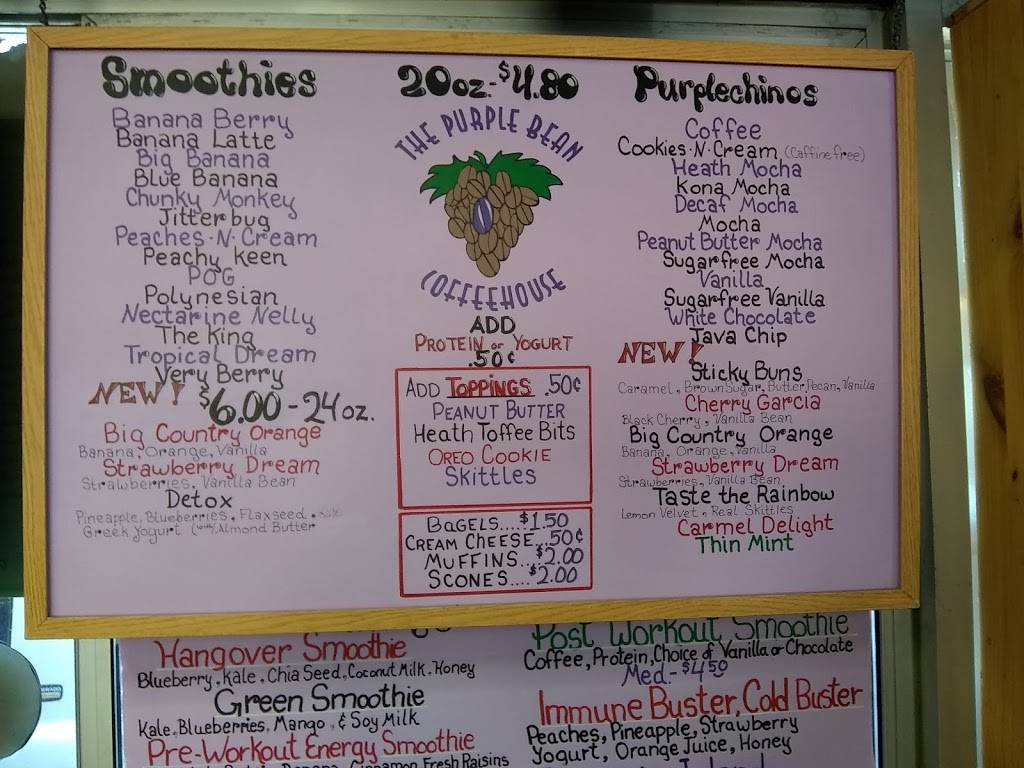 Smoothies
Banana Berry
Banana Latte
Big Banana
Blue Banana
Chunky Monkey
Jitterbug
Peaches·N·Cream
Peachy Keen
POG
Polynesian
Nectarine Nelly
The King
Tropical Dream
Very Berry
NEW! $6.00 - 24oz.
Big Country Orange
Banana, Orange, Vanilla
Strawberry Dream
Strawberries, Vanilla Bean
Detox
Pineapple, Blueberries, Flaxseed
Greek Yogurt (with Almond Butter
20oz.-$4.80
THE PURPLE BEAN
COFFEEHOUSE
ADD
PROTEIN or YOGURT
.50¢
ADD TOPPINGS .50¢
PEANUT BUTTER
HEATH TOFFEE BITS
OREO COOKIE
SKITTLES
BAGELS....$1.50
CREAM CHEESE...50¢
MUFFINS..$2.00
SCONES....$2.00
Purplechinos
Coffee
Cookies·N·Cream (Caffine free)
Heath Mocha
Kona Mocha
Decaf Mocha
Mocha
Peanut Butter Mocha
Sugarfree Mocha
Vanilla
Sugarfree Vanilla
White Chocolate
Java Chip
NEW!
Sticky Buns
Caramel, Brown Sugar, Butter Pecan, Vanilla
Cherry Garcia
Black Cherry, Vanilla Bean
Big Country Orange
Banana, Orange, Vanilla
Strawberry Dream
Strawberries, Vanilla Bean
Taste the Rainbow
Lemon Velvet, Real Skittles
Carmel Delight
Thin Mint
Hangover Smoothie
Blueberry, Kale, Chia Seed, Coconut Milk, Honey
Green Smoothie
Kale, Blueberries, Mango, & Soy Milk
Pre-Workout Energy Smoothie
Banana, Cinnamon, Fresh Raisins
Post Workout Smoothie
Coffee, Protein, Choice of Vanilla or Chocolate
Med.-$4.50
Immune Buster, Cold Buster
Peaches, Pineapple, Strawberry
Yogurt, Orange Juice, Honey